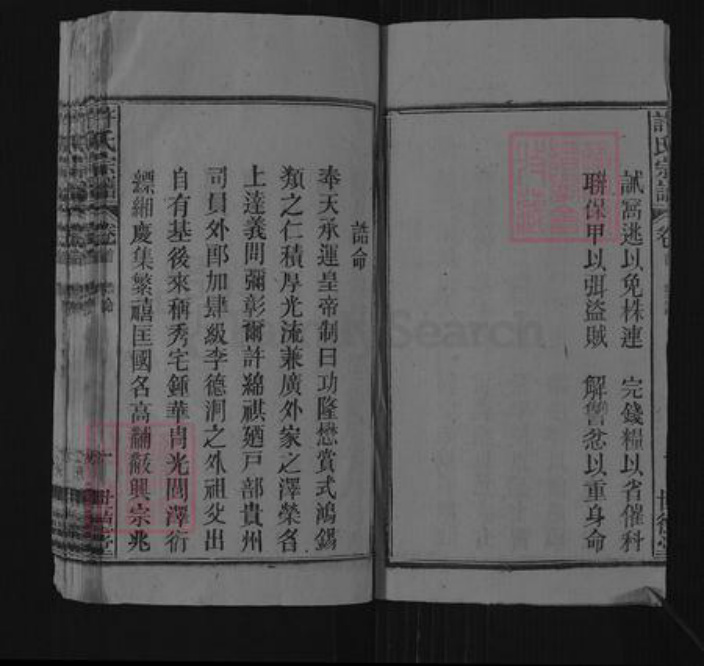 許氏宗譜
誡窩逃以免株連　完錢糧以省催科
聯保甲以弭盜賊　解讐忿以重身命
誥命
奉天承運皇帝制曰功隆懋賞式鴻錫
類之仁積厚光流兼廣外家之澤榮名
上達義問彌彰爾許綿祺廼戶部貴州
司員外郎加肆級李德洞之外祖父出
自有基後來稱秀宅鍾華胄光閭澤衍
縹緗慶集繁禧匡國名高黼黻興宗兆
許氏宗譜
Search